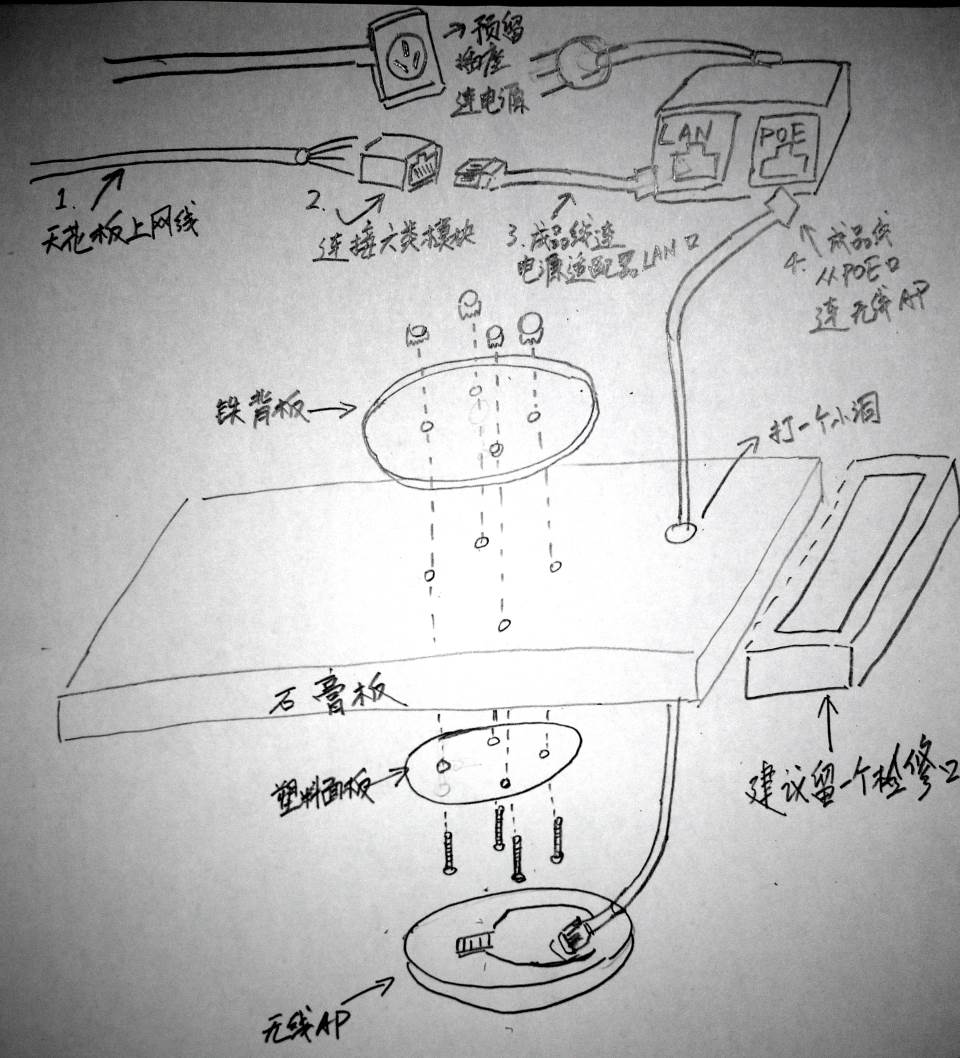 预留
插座
连电源
LAN
POE
1.
天花板上网线
2.
连接六类模块
3.成品线连
电源适配器LAN口
4.成品线
从POE口
连无线AP
铁背板
打一个小洞
石膏板
塑料面板
建议留一个检修口
无线AP